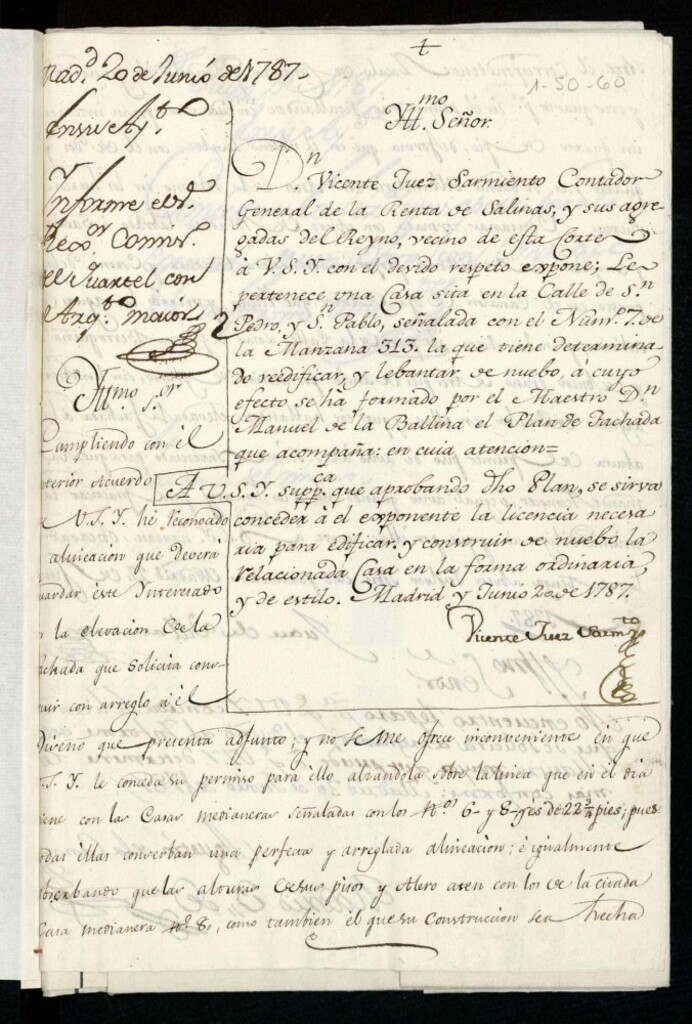 Mad.d 20 de Junio de 1787
En su Ay.to
Informe el S.
Rexo.or Comis.
del Quartel con
el Arq.to maior
1-50-60
Yll.mo Señor.
D.n Vicente Juez Sarmiento Contador
General de la Renta de Salinas, y sus agre-
gadas del Reyno, vecino de esta Corte
à V.S.Y. con el devido respeto expone; Le
pertenece una Casa sita en la Calle de S.n
Pedro, y S.n Pablo, señalada con el Num.o 7. de
la Manzana 313. la que tiene determina-
do reedificar, y lebantar de nuebo, à cuyo
efecto se hà formado por el Maestro D.n
Manuel de la Ballina el Plan de Fachada
que acompaña: en cuia atencion=
A V.S.Y. supp.ca que aprobando dho Plan, se sirva
conceder à el exponente la licencia necesa-
ria para edificar, y construir de nuebo la
relacionada Casa en la forma ordinaria,
y de estilo. Madrid y Junio 20 de 1787.
Vicente Juez Sarm.to
Yll.mo S.or
Cumpliendo con èl
anterior Acuerdo
de V.S.Y. hè reconocido
la alineacion que deverà
guardar èste Interesado
en la elevacion de la
fachada que solicita cons-
truir con arreglo à èl
Diseño que presenta adjunto; y no se me ofrece inconveniente en que
V.S.Y. le conceda su permiso para èllo alzandola sobre la linea que en èl dia
tiene con las Casas medianeras señaladas con los N.os 6 y 8 y es de 22 3/4 pies; pues
todas èllas conserban una perfecta y arreglada alineacion; è igualmente
obserbando que las alturas de sus pisos y Alero aten con los de la citada
Casa medianera N.o 8, como tambien èl que su Construccion sea hecha